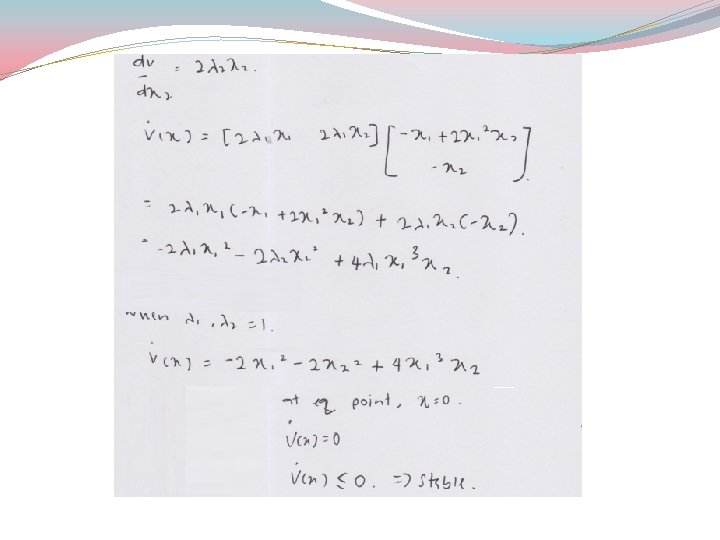 dv/dx₂ = 2λ₂x₂.
V̇(x) = [2λ₁x₁ 2λ₁x₂] [-x₁ + 2x₁²x₂
-x₂].
= 2λ₁x₁(-x₁ + 2x₁²x₂) + 2λ₁x₂(-x₂).
= -2λ₁x₁² - 2λ₂x₂² + 4λ₁x₁³x₂.
when λ₁, λ₂ = 1.
V̇(x) = -2x₁² - 2x₂² + 4x₁³x₂
at eq point, x=0.
V̇(x) = 0
V̇(x) ≤ 0. => stable.